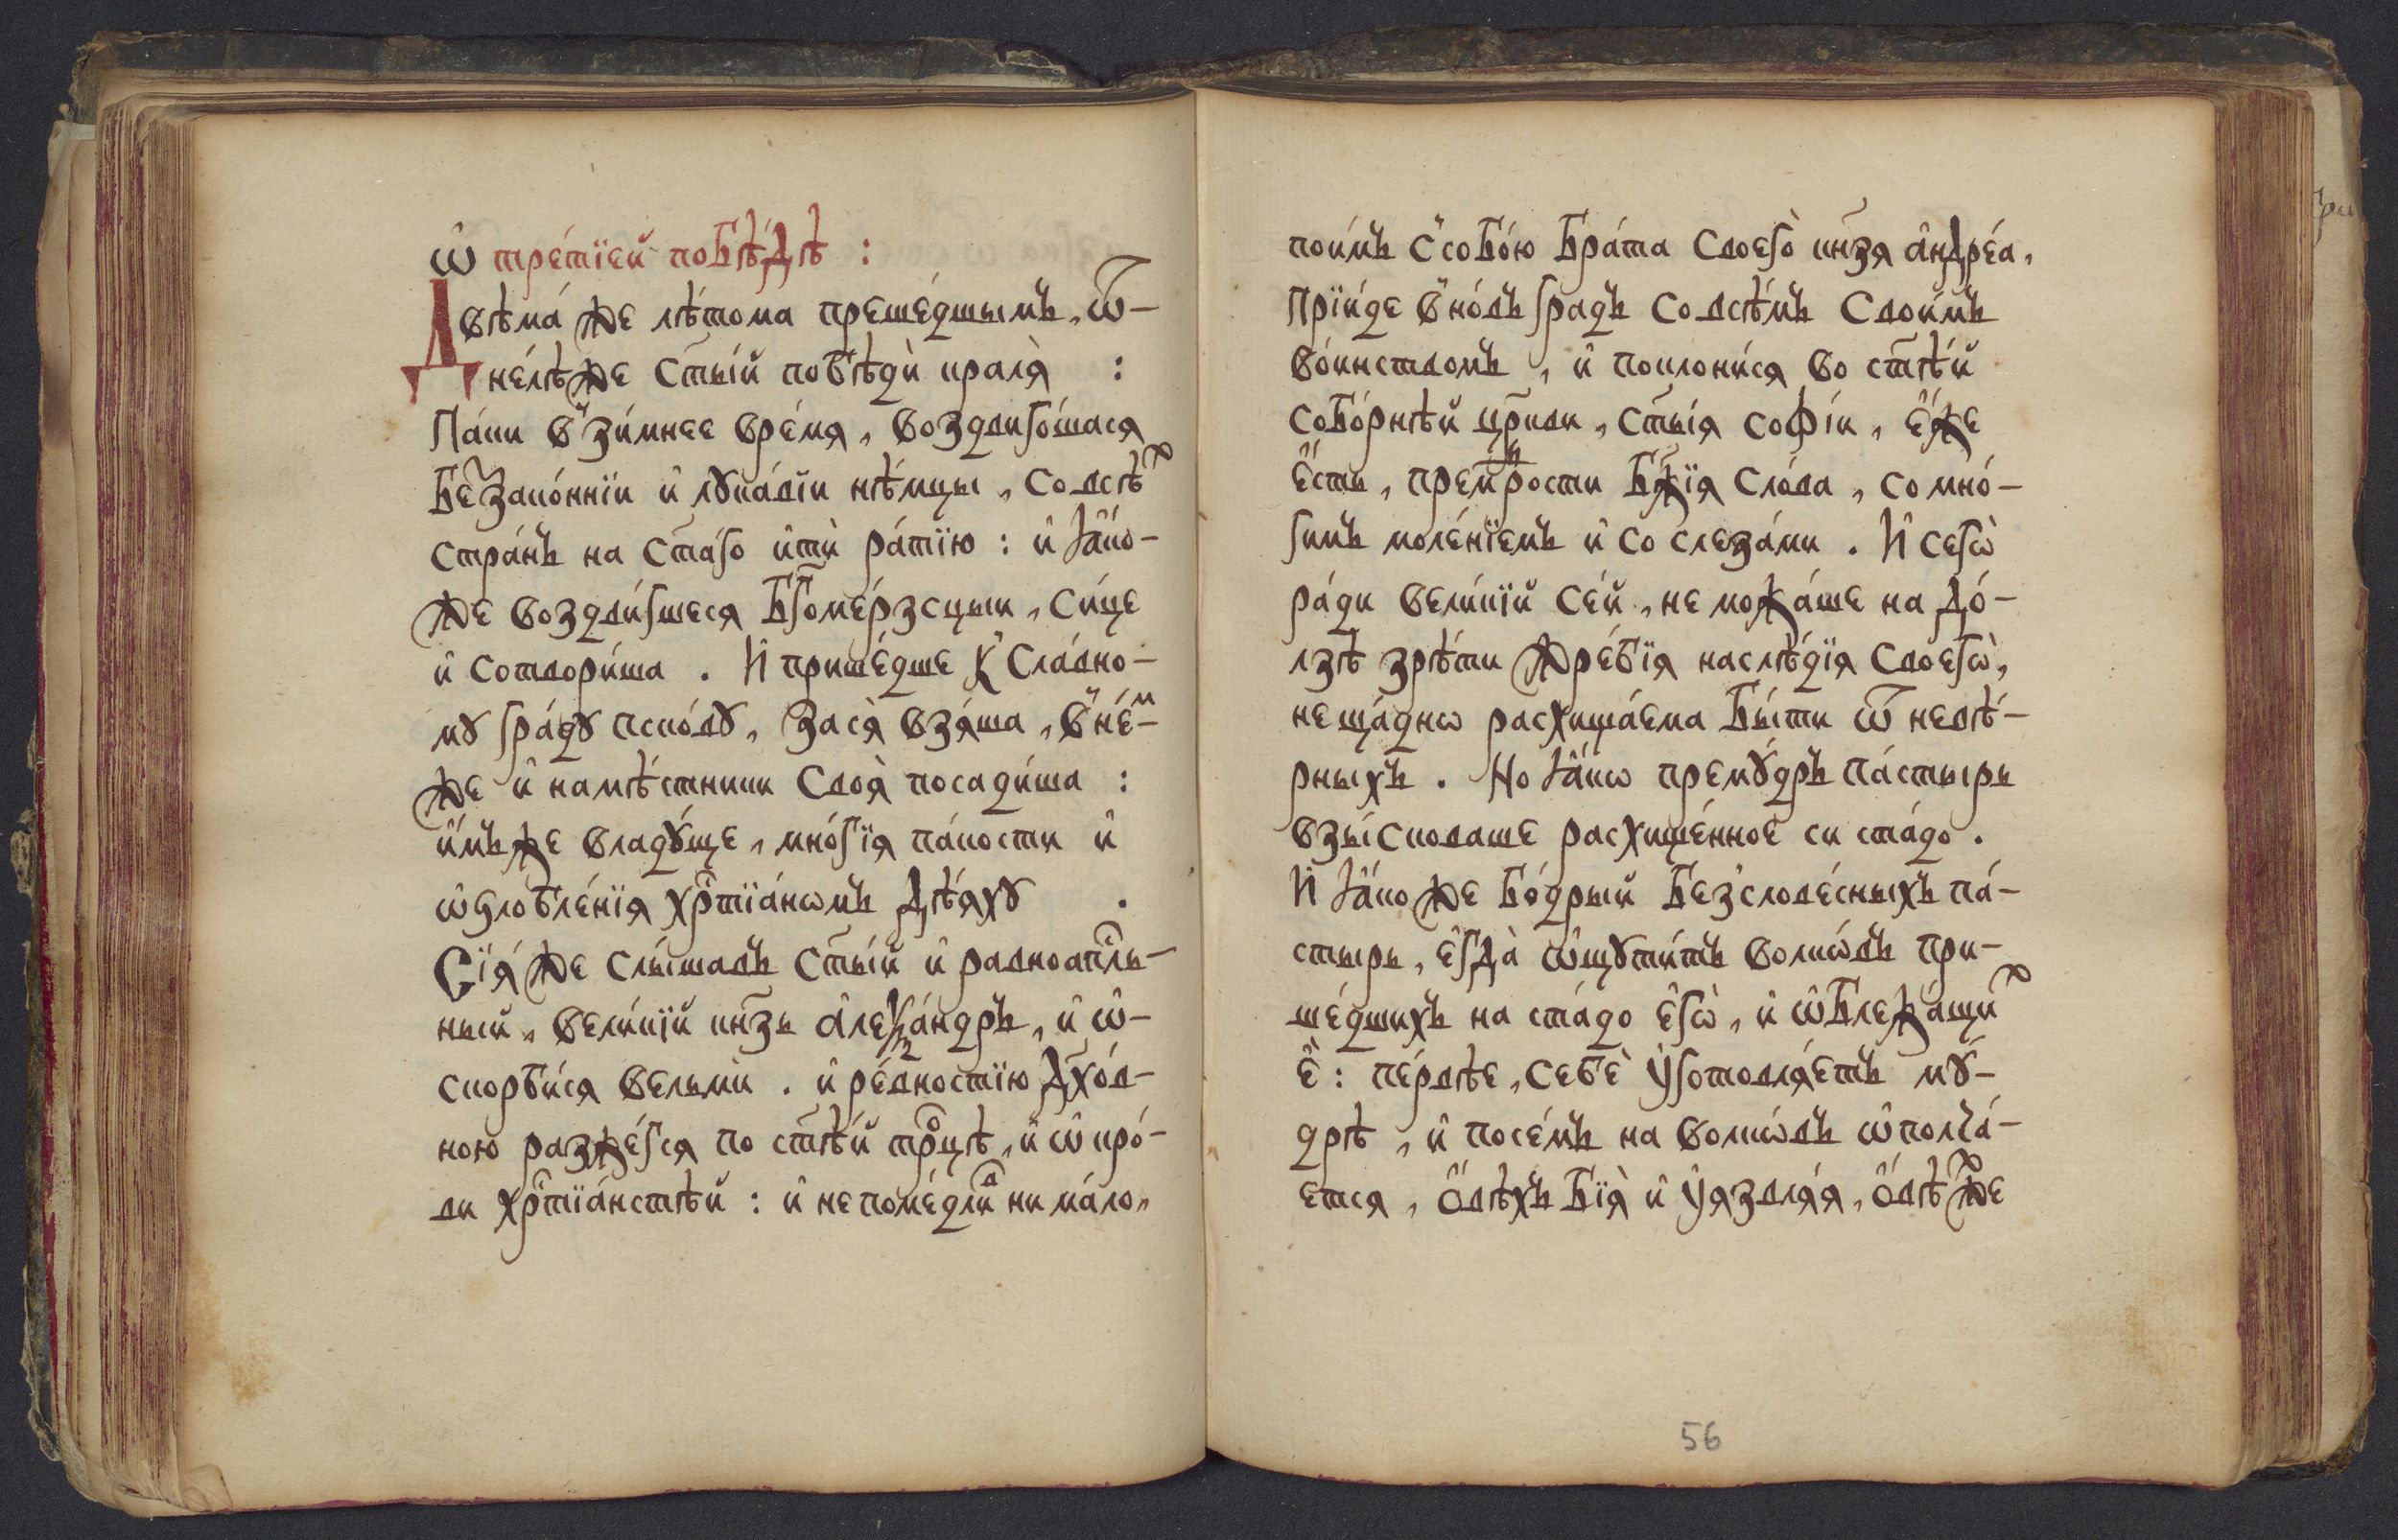 Ѡ҆ тре́тїей побѣ́дѣ :
Двѣма́ же лѣ́тома преше́дшымъ, ѿ-
не́лѣже ст҃ы́й побѣдѝ краля̀ :
Па́ки в̾ зи́мнее вре́мя, воздвиго́шася
без̾зако́ннїи и҆ лꙋка́вїи нѣ́мцы, со всѣⷯ
стра́нъ на ст҃а́го и҆тѝ ра́тїю : и҆ ꙗ҆́ко-
же воздви́гшеся бг҃оме́рзсцыи, си́це
и҆ сотвори́ша . И҆ прише́дше к̾ сла́вно-
мꙋ гра́дꙋ пско́вꙋ, за ся̀ взя́ша, в̾ не́ⷨ-
же и҆ намѣ́стники своя̀ посади́ша :
и҆̀мже владꙋ́ще, мно́гїя па́кости и҆
ѡ҆ѕлобле́нїя хрⷭ҇тїа́нѡмъ дѣ́яхꙋ .
Сїя́ же слы́шавъ ст҃ы́й и҆ равноапⷭ҇ль-
ный, вели́кїй кн҃зь а҆леѯа́ндръ, и҆ ѡ҆-
скорби́ся вельмѝ . и҆ ре́вностїю дх҃о́в-
ною разже́гся по ст҃ѣ́й трⷪ҇цѣ, и҆ ѡ҆ кро́-
ви хрⷭ҇тїа́нстѣй : и҆ не поме́дливⷧ ни ма́ло,
пои́мъ с̾ собо́ю бра́та своего̀ кн҃зя а҆ндре́а,
Прїи́де в̾ но́въ градъ со всѣ́мъ свои́мъ
во́инствомъ, и҆ поклони́ся во ст҃ѣ́й
собо́рнѣй цр҃кви, ст҃ы́я софі́и, є҆́же
є҆́сть, премⷣрости бж҃їя сло́ва, со мно́-
гимъ моле́нїемъ и҆ со слеза́ми . И҆ сегѡ̀
ра́ди вели́кїй се́й, не можа́ше на до́-
лзѣ зрѣ́ти жре́бїя наслѣ́дїя своегѡ̀,
неща́днѡ расхища́ема бы́ти ѿ невѣ́-
рныхъ . Но ꙗ҆́кѡ премꙋ́дръ па́стырь
взы́сковаше расхище́нное си ста́до .
И҆ ꙗ҆́коже бо́дрый без̾слове́сныхъ па́-
стырь, є҆гда̀ ѡ҆щꙋти́тъ волкѡ́въ при-
ше́дшихъ на ста́до є҆гѡ̀, и҆ ѡ҆блежа́щиⷯ
є҆̀ : пе́рвѣе, себѐ ᲂу҆готовля́етъ мꙋ́-
дрѣ, и҆ посе́мъ на волкѡ́въ ѡ҆полча́-
ется, ѻ҆́вѣхъ бїя̀ и҆ ᲂу҆язвля́я, ѻ҆́вѣⷯже
56